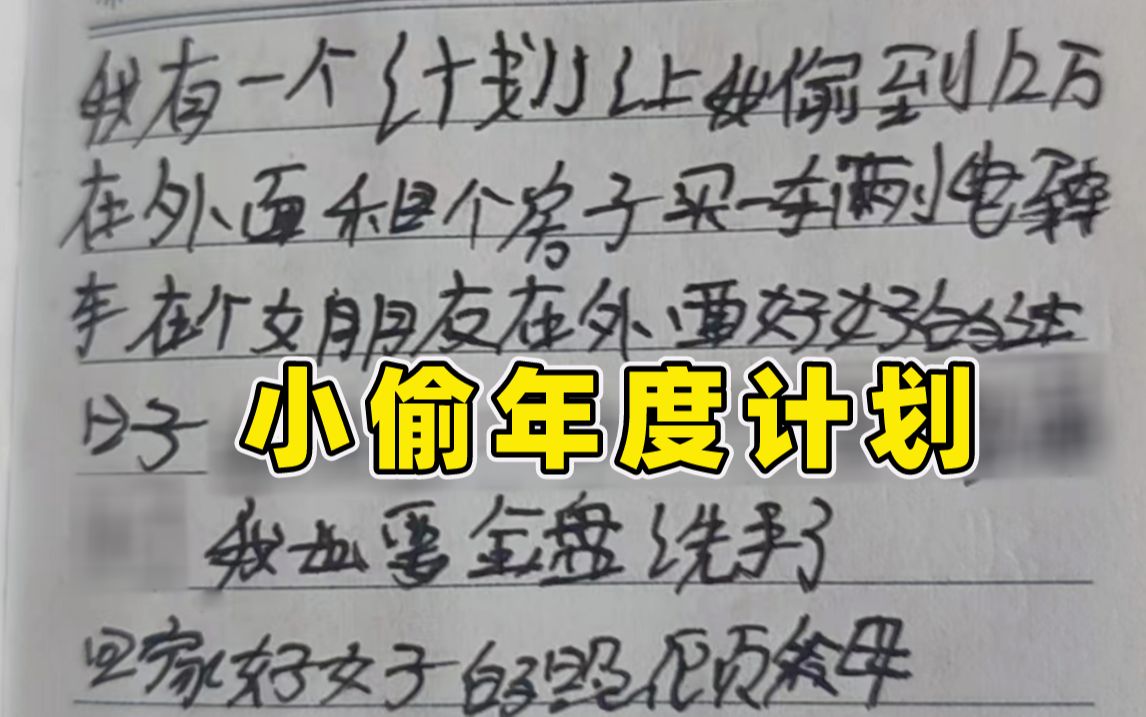 我有一个计划让我偷到12万
在外面租个房子买一车辆小电
车在个女朋友在外面好好台
日子
小偷年度计划
我 金盘洗手了
回家好好 的 父母